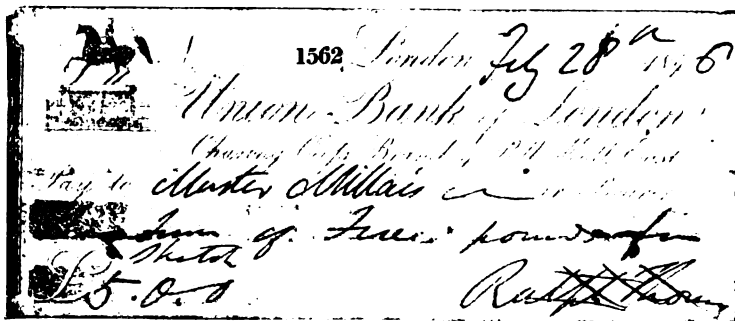 1562 London Feby 28th 1846
Union Bank of London
Charing Cross Branch, Pall Mall East
Pay to Master Millais or Bearer
Sum of Five pounds for
Sketch
£5.0.0
Ralph Thomas